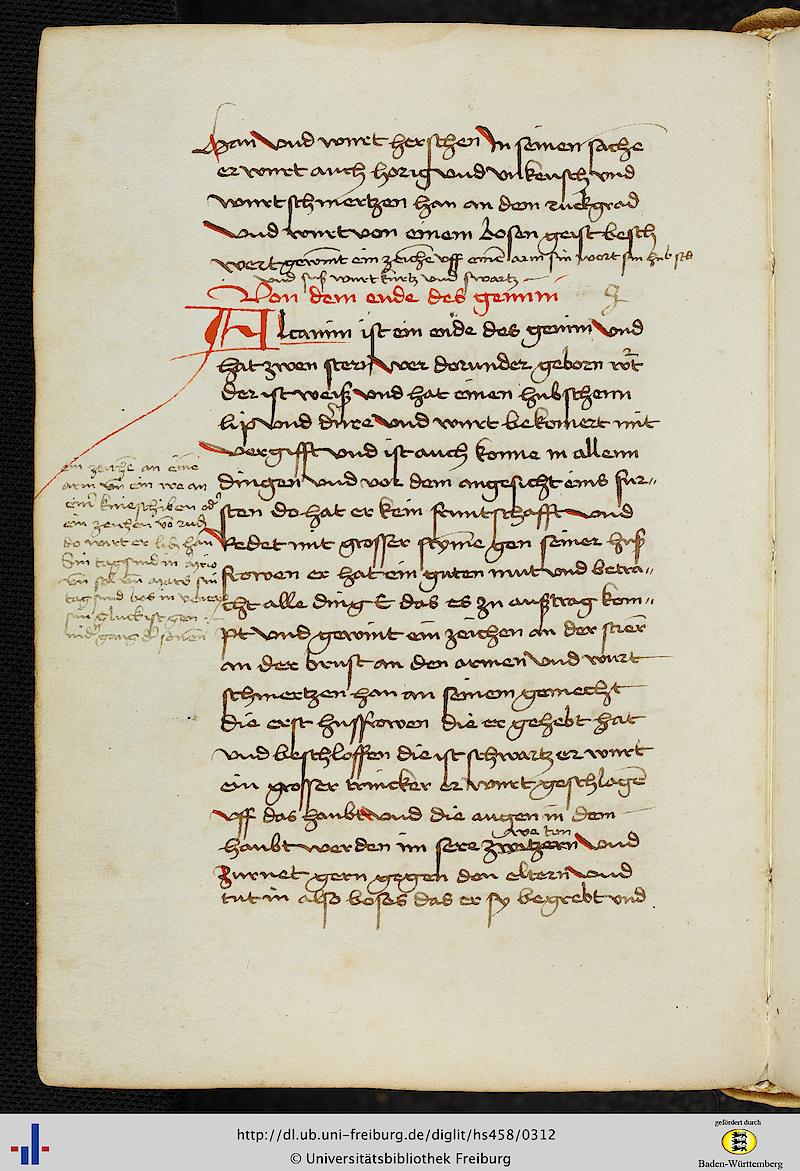 han und wurt herschen In seinen sachē
er wurt auch horig und unkeusch und
wurt schmertzen han an dem ruckgrad
und wurt von einem bosen geist besch
wert gewīnt ein zeichē uff einē arm sin wort sin hubsch
und suß wurt kurtz und swartz
Von dem ende des gemini
Alcanim ist ein ende des gemini und
hat zwen stern wer dorunder geborn wirt
der ist weiß und hat einen hubschenn
lip und dure und wurt bekomert mit
vergifft und ist auch konne in allenn
dingen und vor dem angesicht eins fur-
sten do hat er kein fruntschafft und
Redet mit grosser stȳme gen seiner huß
frowen er hat ein guten mut und betra-
cht alle ding das es zu außtrag kom-
pt und gewint ein zeichen an der stirn
an der brust an den armen und wurt
schmertzen han an seinem gemecht
die erst hussfrowen die er gehebt hat
und beschloffen die ist schwartz er wurt
ein grosser trincker er wurt geschlagē
uff das haubt und die augen in dem
we ton
haubt werden im sere zwitzern und
zurnet gern gegen den eltern und
tut in also boses das er sy begrebt und
ein zeichē an eine
arm uñ ein we an
einr knieschiben od
ein zeichen vō rud
do wirt er lib han
Sin tag sind in
tag sind bos in vener
sin gluck ist gen
nidgang dr sonen
http://dl.ub.uni-freiburg.de/diglit/hs458/0312
© Universitätsbibliothek Freiburg
gefördert durch
Baden-Württemberg